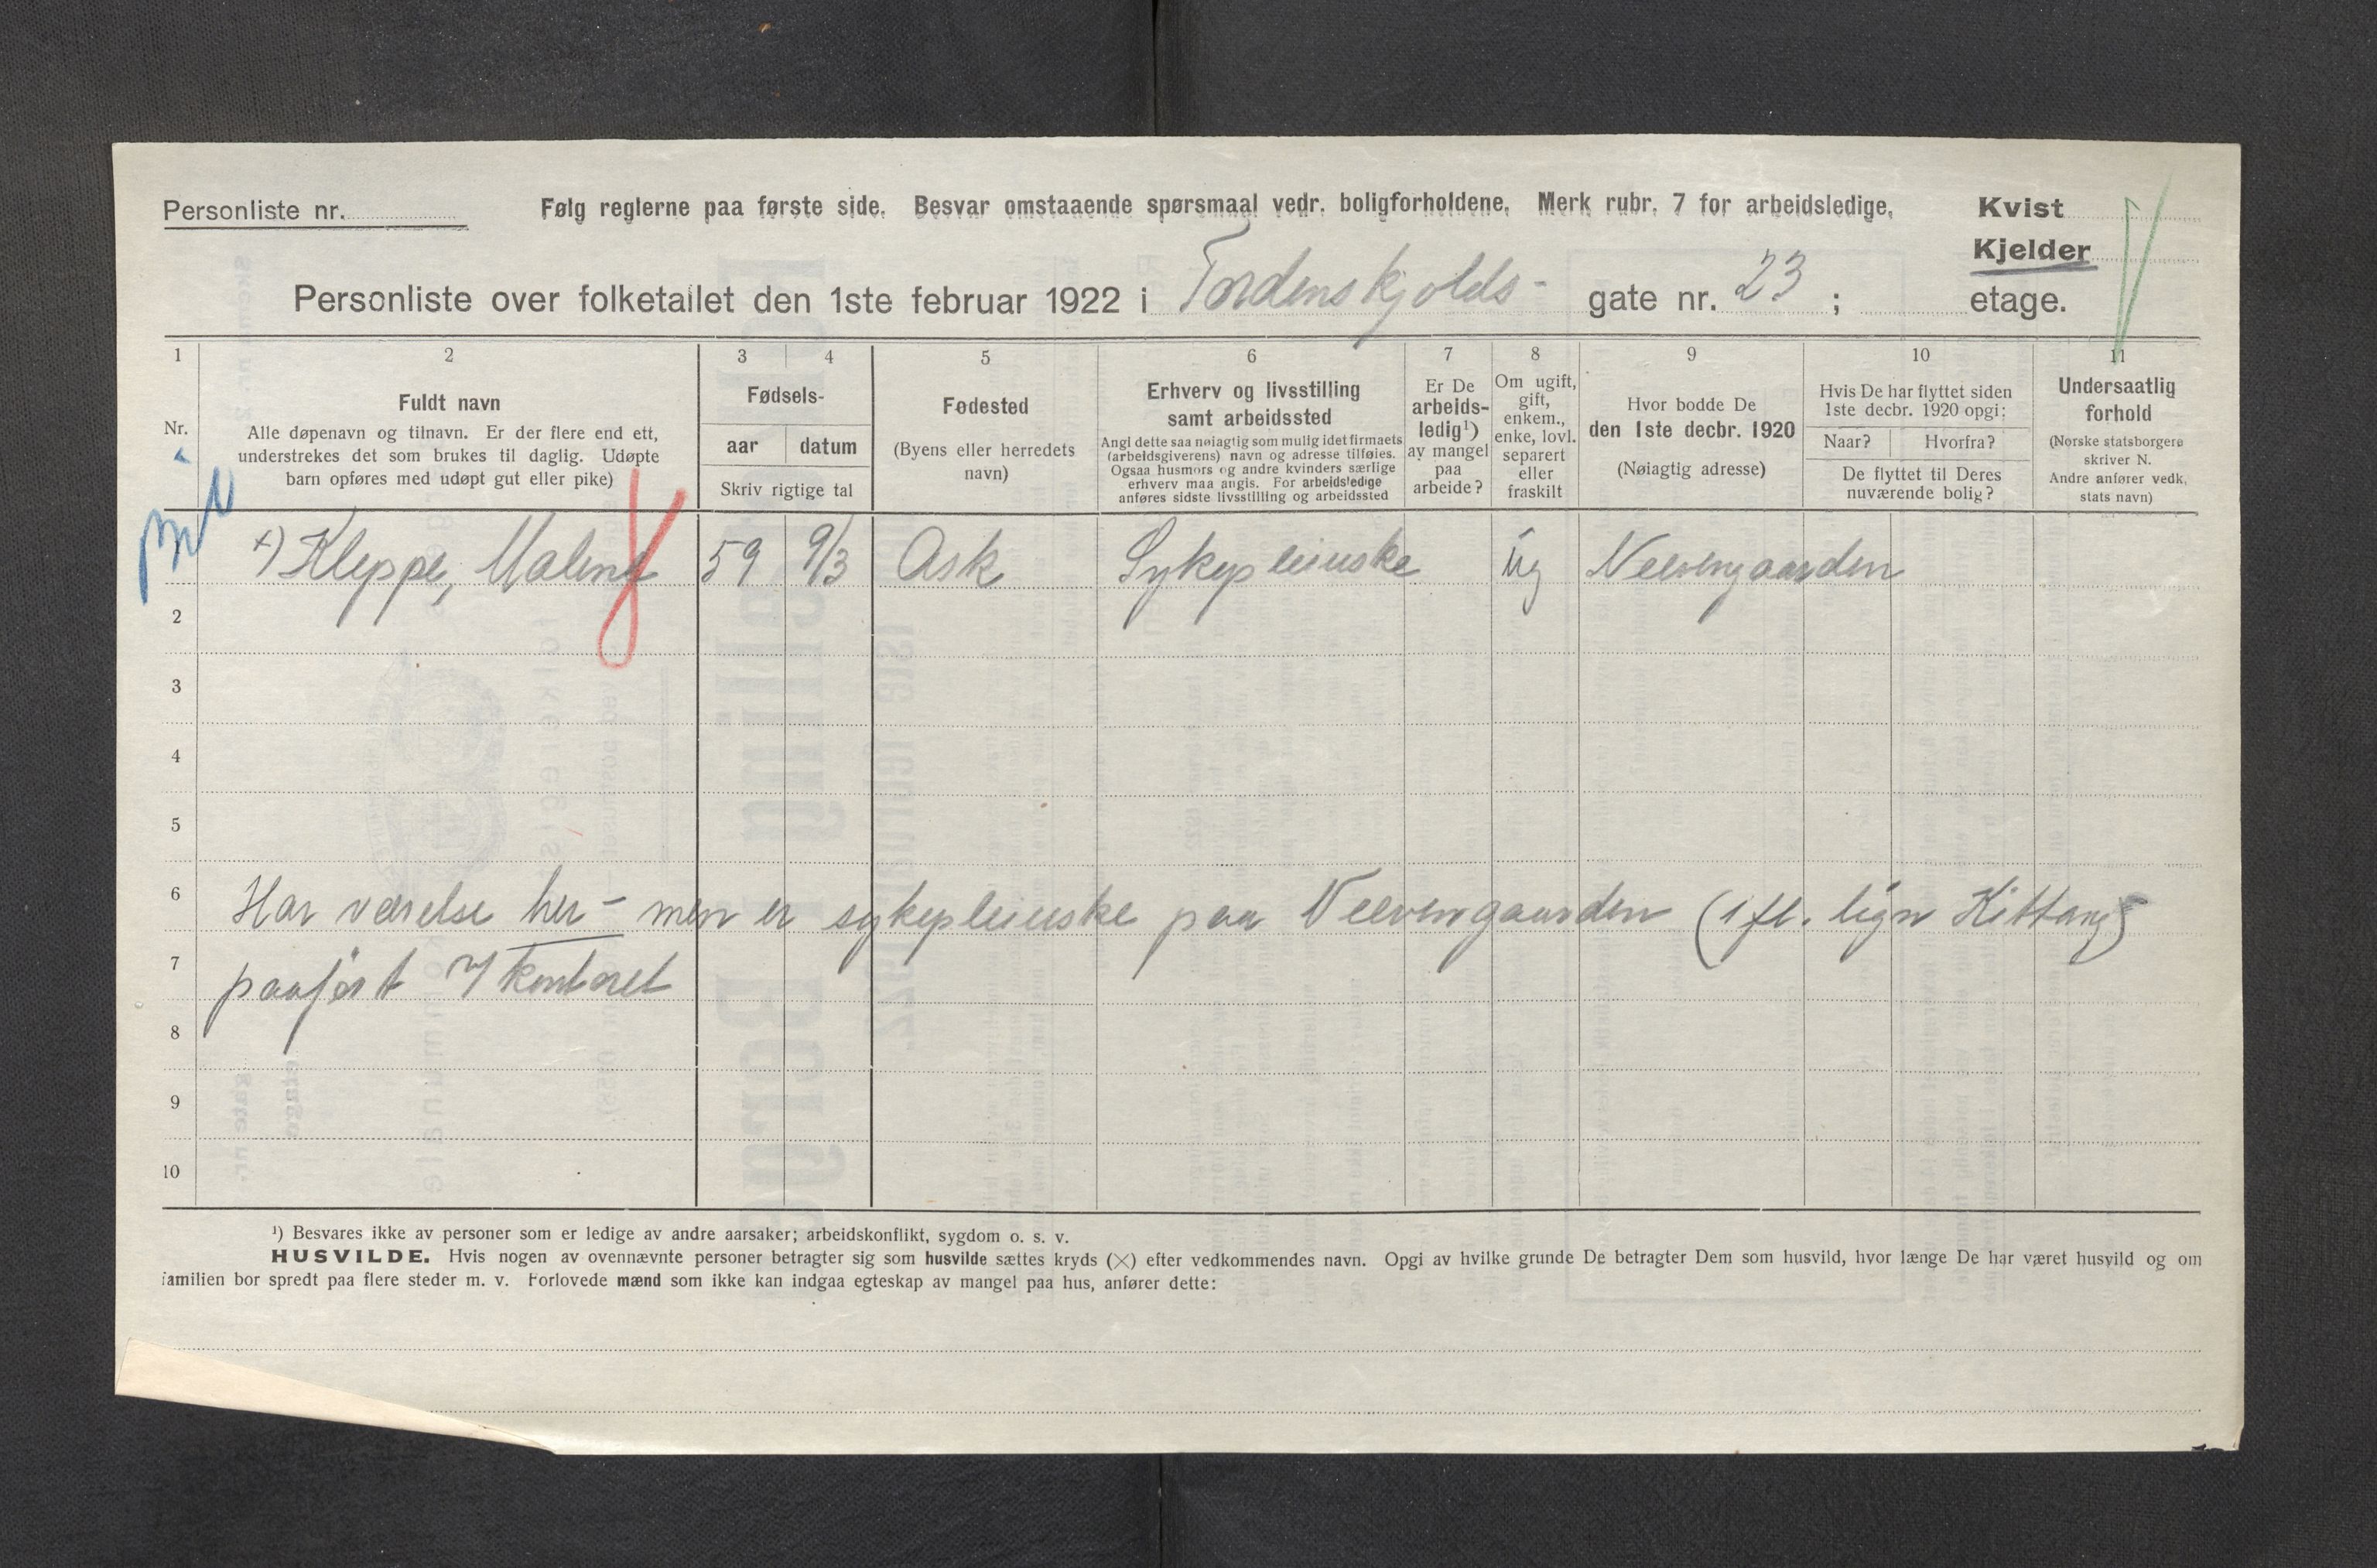 Personliste nr.
Følg reglerne paa første side. Besvar omstaaende spørsmaal vedr. boligforholdene. Merk rubr. 7 for arbeidsledige.
Kvist
Kjelder
Personliste over folketallet den 1ste februar 1922 i Tordenskjolds- gate nr. 23 ; etage.
1 2 3 4 5 6 7 8 9 10 11
Nr.
Fuldt navn
Alle døpenavn og tilnavn. Er der flere end ett,
understrekes det som brukes til daglig. Udøpte
barn opføres med udøpt gut eller pike)
Fødsels-
aar datum
Skriv rigtige tal
Fødested
(Byens eller herredets
navn)
Erhverv og livsstilling
samt arbeidssted
Angi dette saa nøiagtig som mulig idet firmaets
(arbeidsgiverens) navn og adresse tilføies.
Ogsaa husmors og andre kvinders særlige
erhverv maa angis. For arbeidsledige
anføres sidste livsstilling og arbeidssted
Er De
arbeids-
ledig¹)
av mangel
paa
arbeide?
Om ugift,
gift,
enkem.,
enke, lovl.
separert
eller
fraskilt
Hvor bodde De
den 1ste decbr. 1920
(Nøiagtig adresse)
Hvis De har flyttet siden
1ste decbr. 1920 opgi:
Naar? Hvorfra?
De flyttet til Deres
nuværende bolig?
Undersaatlig
forhold
(Norske statsborgere
skriver N.
Andre anfører vedk.
stats navn)
×) Kleppe, Malene 59 9/3 Ask Sykepleierske ug Neevengaarden
2
3
4
5
6 Har værelse her – men er sykepleierske paa Neevengaarden (ifl. lign Kittang)
7 paaført v/ kontoret
8
9
10
¹) Besvares ikke av personer som er ledige av andre aarsaker; arbeidskonflikt, sygdom o. s. v.
HUSVILDE. Hvis nogen av ovennævnte personer betragter sig som husvilde sættes kryds (×) efter vedkommendes navn. Opgi av hvilke grunde De betragter Dem som husvild, hvor længe De har været husvild og om
familien bor spredt paa flere steder m. v. Forlovede mænd som ikke kan indgaa egteskap av mangel paa hus, anfører dette: